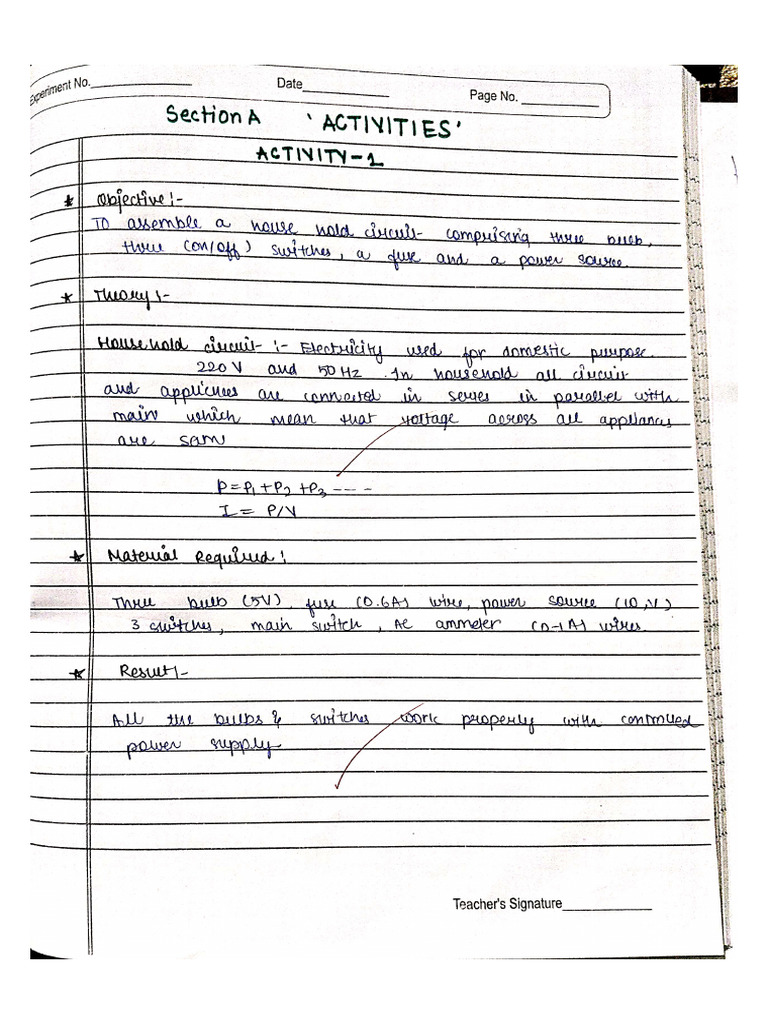 Experiment No. Date Page No.
Section A 'ACTIVITIES'
ACTIVITY-1
* Objective:-
To assemble a house hold circuit comprising three bulb,
three (on/off) switches, a fuse and a power source.
* Theory:-
Household circuit :- Electricity used for domestic purpose.
220 V and 50 Hz. In household all circuit
and applicnes are connected in series in parallel with
main which mean that voltage across all appliances
are sam
P = P1 + P2 + P3 ----
I = P/V
* Material Required:
Three bulb (5V), fuse (0.6A) wire, power source (10,V)
3 switches, main switch, Ac ammeter (0-1A) wires.
* Result:-
All the bulbs & switches work properly with controlled
power supply
Teacher's Signature